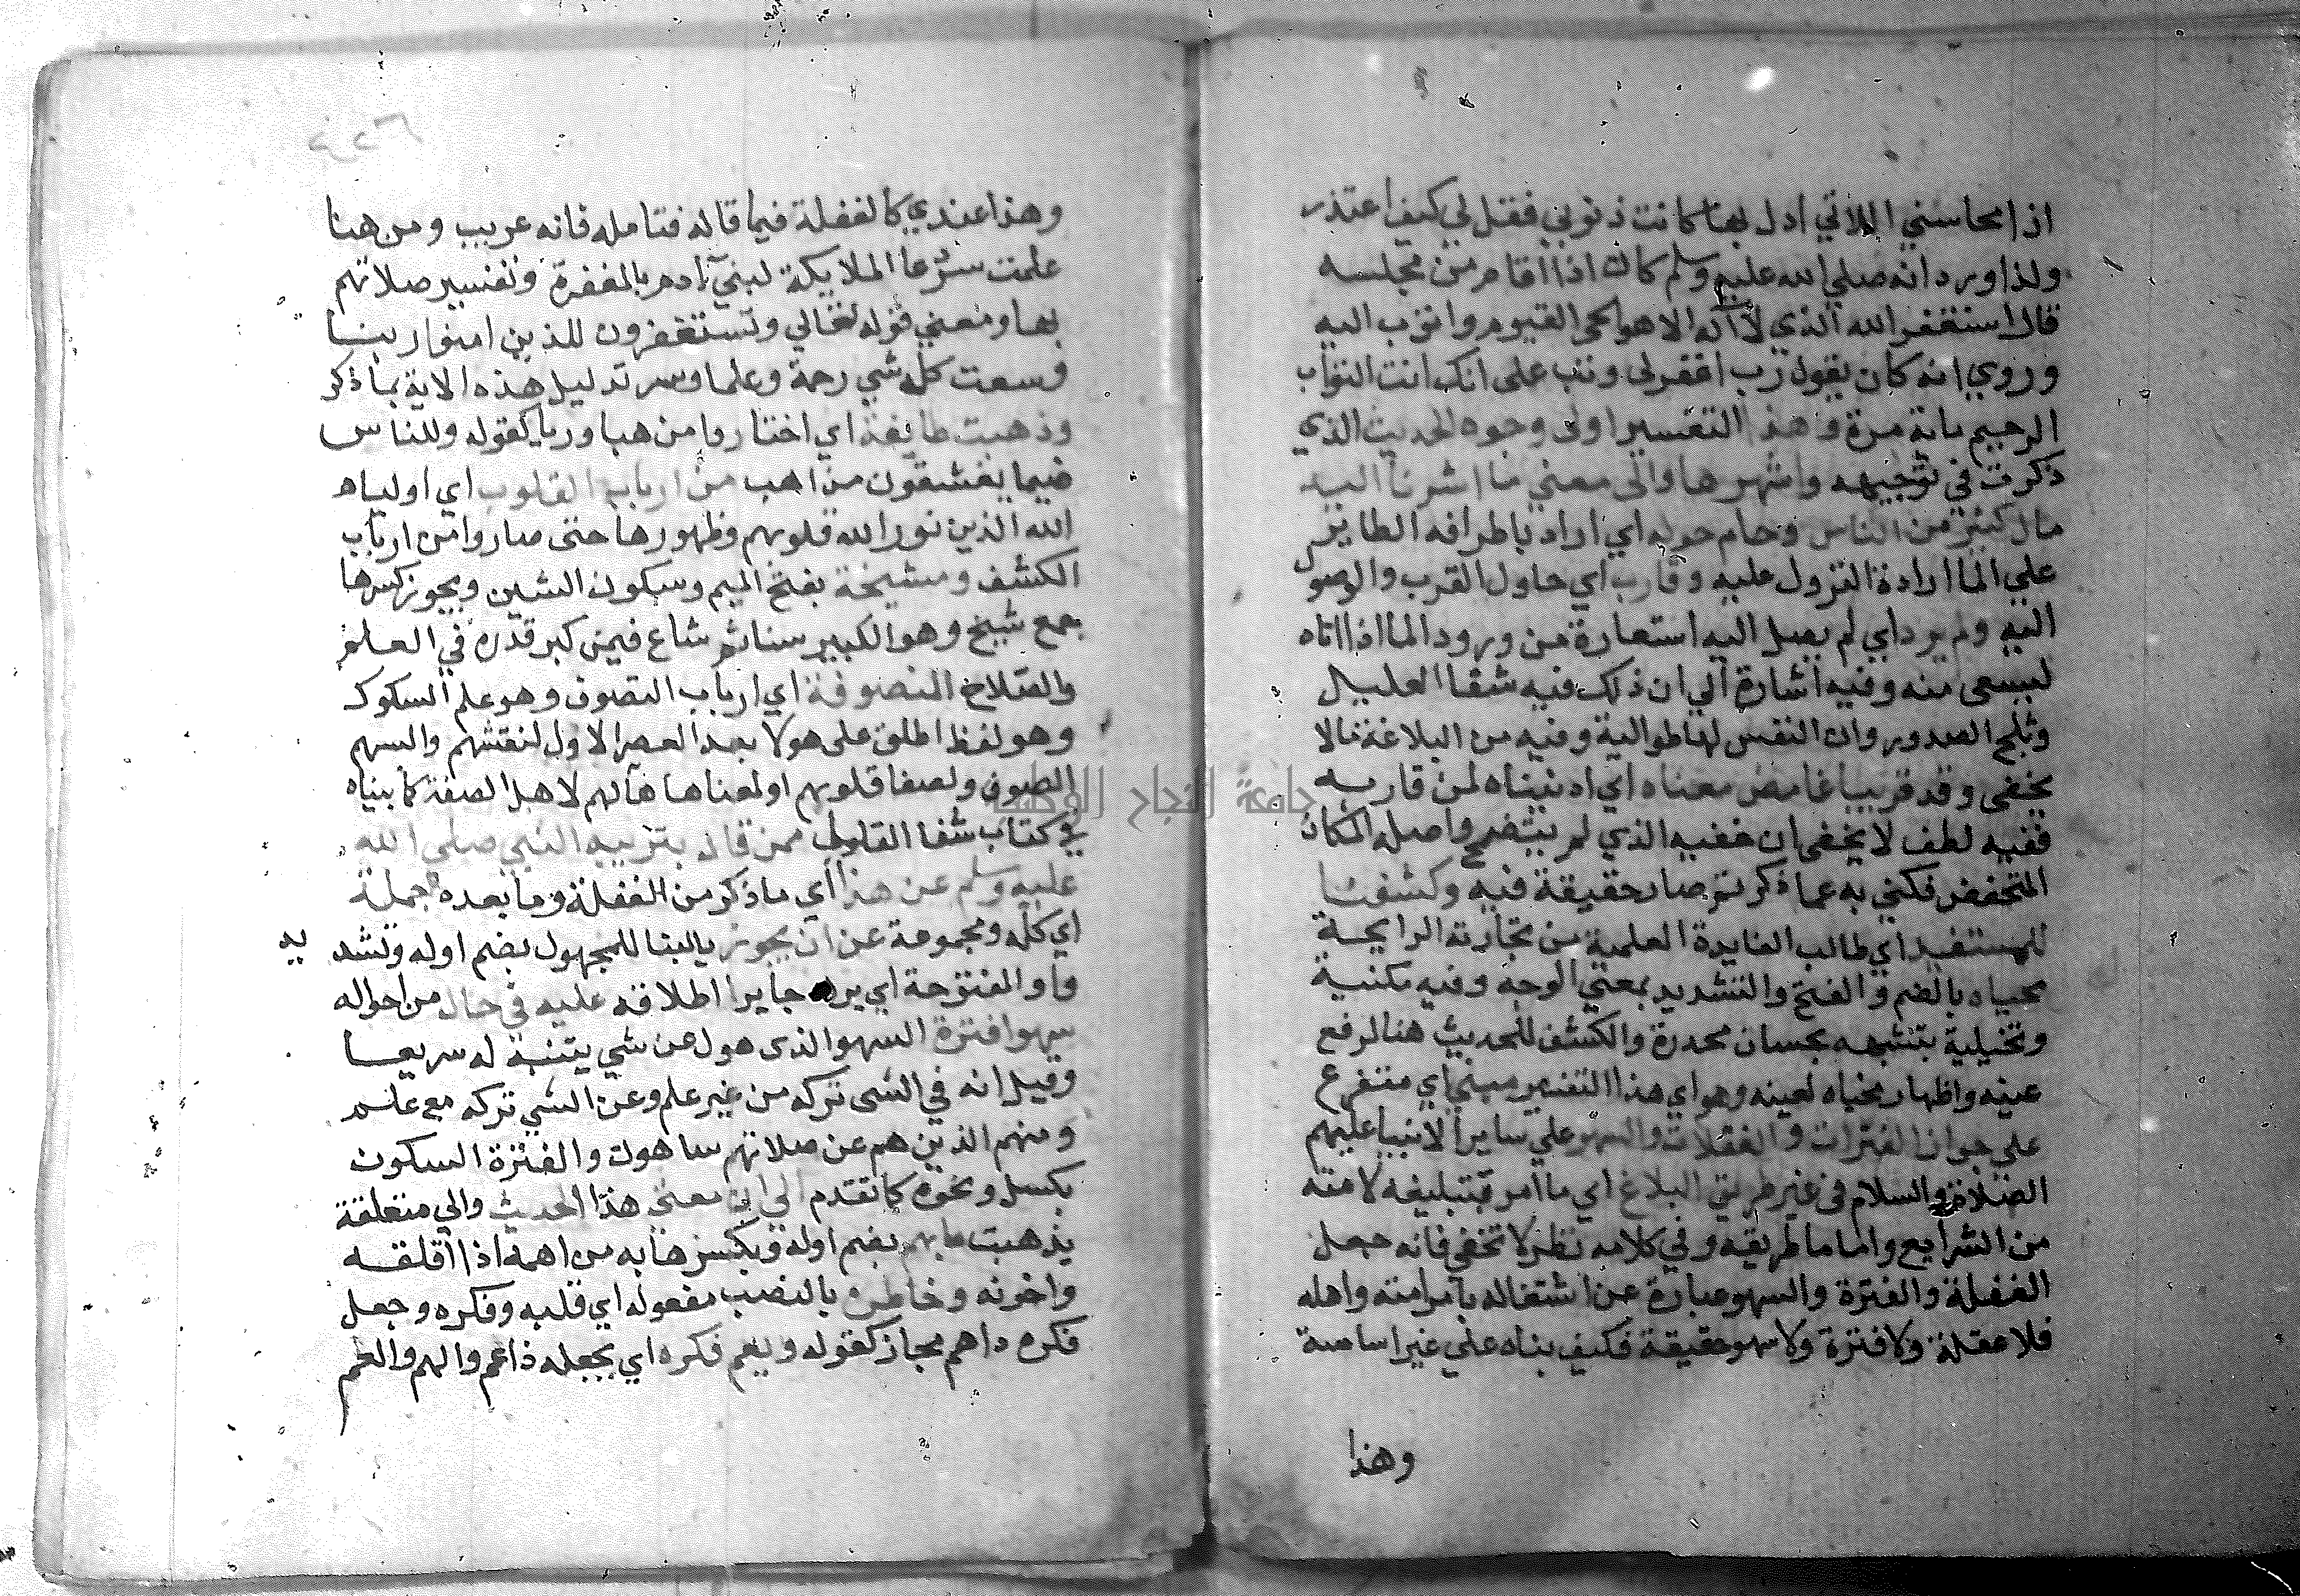 اذا محاسني اللاتي ادل بها كانت ذنوبي فقل لي كيف اعتذر
ولذا ورد انه صلي الله عليه وسلم كان اذا قام من مجلسه
قال استغفر الله الذي لا اله الا هو الحي القيوم واتوب اليه
وروي انه كان يقول رب اغفر لي وتب على انك انت التواب
الرحيم ماية مرة وهذا التفسير اولى وجوه الحديث الذي
ذكرت في توجيهه واشهرها والى معني ما اشرنا اليه
مال كثير من الناس وحام حوله اي اراد باطرافه الطاير
علي الما ارادة النزول عليه وقارب اي حاول القرب والوصول
اليه ولم يرد اي لم يصل اليه استعارة من ورود الما اذا اتاه
ليسقى منه وفيه اشارة الي ان ذلك فيه شفا العليل
وثلج الصدور وان النفس لها طوالية وفيه من البلاغة ما لا
يخفى وقد قربنا غامض معناه اي ادنيناه لمن قاربه
ففيه لطف لا يخفى ان خفيه الذي لم يتضح واصله المكان
المنخفض فكني به عما ذكر ثم صار حقيقة فيه وكشفنا
للمستفيد اي طالب الفايدة العلمية من تجارته الرابحة
محياه بالضم والفتح والتشديد بمعني الوجه وفيه مكنية
وتخيلية بتشبيهه بحسان مخدرة والكشف للحديث هنا لرفع
عينه واظهار محياه لعينه وهو اي هذا التفسير مبني اي متفرع
على جواز الفترات والغفلات والسهو علي ساير الانبيا عليهم
الصلاة والسلام في غير طريق البلاغ اي ما امر بتبليغه لامته
من الشرايع واما ما طريقه وفي كلامه نظر لا تخفى فانه جعل
الغفلة والفترة والسهو عبارة عن اشتغاله بامر امته واهله
فلا غفلة ولا فترة ولا سهو حقيقة فكيف بناه علي غير اساسه
وهذا
وهذا عندي كالغفلة فيما قاله فتامله فانه غريب ومن هنا
علمت سر دعا الملايكة لبني آدم بالمغفرة وتفسير صلاتهم
بها ومعني قوله تعالي ويستغفرون للذين امنوا ربنا
وسعت كل شي رحمة وعلما وسر تذليل هذه الاية بما ذكر
وذهبت طايفة اي اختاروا مذهبا ورايا كقوله وللناس
فيما يعشقون مذاهب من ارباب القلوب اي اولياء
الله الذين نور الله قلوبهم وطهورها حتى صاروا من ارباب
الكشف ومشيخة بفتح الميم وسكون الشين ويجوز كسرها
جمع شيخ وهو الكبير سنا ثم شاع فيمن كبر قدره في العلم
والصلاح المتصوفة اي ارباب التصوف وهو علم السلوك
وهو لفظ اطلق على هولا بعد العصر الاول لتقشفهم ولبسهم
الصوف ولصفا قلوبهم او لمعناها حالهم لاهل الصفة كما بيناه
في كتاب شفا الغليل ممن قال بتنزيه النبي صلى الله
عليه وسلم عن هذا اي ما ذكر من الغفلة وما بعده جملة
اي كله ومجموعة عن ان يجوز بالبنا للمجهول بضم اوله وتشديد
واو المفتوحة اي يرى جايزا اطلاقه عليه في حال من احواله
سهو او فترة السهو الذى هول عن شي يتنبه له سريعا
وقيل انه في الشى تركه من غير علم وعن الشي تركه مع علم
ومنهم الذين هم عن صلاتهم ساهون والفترة السكون
بكسل ونحوه كما تقدم الي ان معنى هذا الحديث والي متعلقة
بذهبت ما يهم بضم اوله وبكسر هابه من اهمه اذا اقلقه
واحزنه وخاطره بالنصب مفعوله اي قلبه وفكره وجعل
فكره ذا هم مجاز كقوله ويغم فكره اي يجعله ذا غم والهم والغم